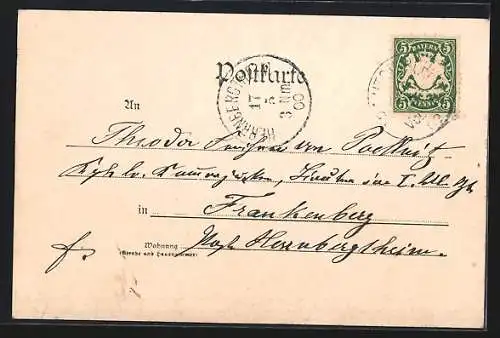 5 BAYERN 5
5 PFENNIG 5
Postkarte
17
5
3 Nm
00
An
Theodor Freiherr von Poellnitz
Kgl. b. Kammerjunker, im I. Ul. Rgt.
in Frankenberg
Wohnung
(Strasse und Hausnummer)
Post Herrnbergtheim.